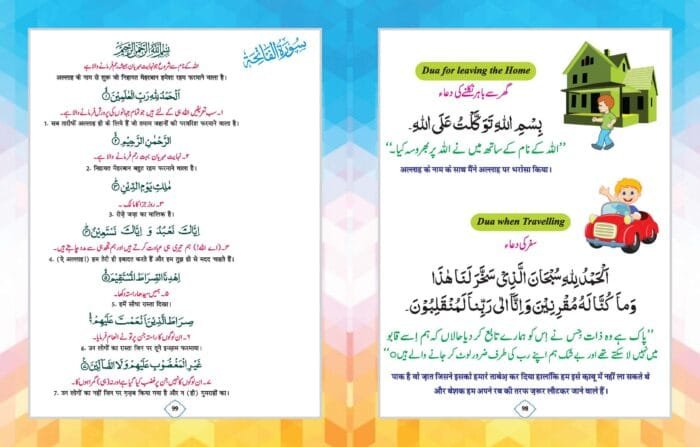 Dua for leaving the Home
گھر سے باہر نکلنے کی دعاء
بِسْمِ اللّٰهِ تَوَكَّلْتُ عَلَى اللّٰهِ۔
”اللہ کے نام کے ساتھ میں نے اللہ پر بھروسہ کیا۔“
अल्लाह के नाम के साथ मैंने अल्लाह पर भरोसा किया।
Dua when Travelling
سفر کی دعاء
اَلْحَمْدُ لِلّٰهِ سُبْحَانَ الَّذِیْ سَخَّرَ لَنَا هٰذَا
وَمَا كُنَّا لَهٗ مُقْرِنِیْنَ وَاِنَّآ اِلٰی رَبِّنَا لَمُنْقَلِبُوْنَ۔
”پاک ہے وہ ذات جس نے اس کو ہمارے تابع کر دیا حالاں کہ ہم اسے قابو
میں نہیں لا سکتے تھے اور بے شک ہم اپنے رب کی طرف ضرور لوٹ کر جانے والے ہیں۔“
पाक है वो ज़ात जिसने इसको हमारे ताबेअ़ कर दिया हालांकि हम इसे क़ाबू में नहीं ला सकते थे
और बेशक हम अपने रब की तरफ़ ज़रूर लौटकर जाने वाले हैं।
98
سُوْرَةُ الْفَاتِحَة
بِسْمِ اللّٰهِ الرَّحْمٰنِ الرَّحِیْمِ
اللہ کے نام سے شروع جو نہایت مہربان ہمیشہ رحم فرمانے والا ہے۔
अल्लाह के नाम से शुरू जो निहायत मेहरबान हमेशा रहम फरमाने वाला है।
اَلْحَمْدُ لِلّٰهِ رَبِّ الْعٰلَمِیْنَ ۙ﴿۱﴾
۱۔ سب تعریفیں اللہ ہی کے لئے ہیں جو تمام جہانوں کی پرورش فرمانے والا ہے۔
1. सब तारीफ़ें अल्लाह ही के लिये हैं जो तमाम जहानों की परवरिश फरमाने वाला है।
الرَّحْمٰنِ الرَّحِیْمِ ۙ﴿۲﴾
۲۔ نہایت مہربان بہت رحم فرمانے والا ہے۔
2. निहायत मेहरबान बहुत रहम फरमाने वाला है।
مٰلِكِ یَوْمِ الدِّیْنِ ؕ﴿۳﴾
۳۔ روز جزا کا مالک ہے۔
3. रोज़े जज़ा का मालिक है।
اِیَّاكَ نَعْبُدُ وَ اِیَّاكَ نَسْتَعِیْنُ ؕ﴿۴﴾
۴۔ (اے اللہ!) ہم تیری ہی عبادت کرتے ہیں اور ہم تجھ ہی سے مدد چاہتے ہیں۔
4. (ऐ अल्लाह!) हम तेरी ही इबादत करते हैं और हम तुझ ही से मदद चाहते हैं।
اِهْدِنَا الصِّرَاطَ الْمُسْتَقِیْمَ ۙ﴿۵﴾
۵۔ ہمیں سیدھا راستہ دکھا۔
5. हमें सीधा रास्ता दिखा।
صِرَاطَ الَّذِیْنَ اَنْعَمْتَ عَلَیْهِمْ ۙ﴿۶﴾
۶۔ ان لوگوں کا راستہ جن پر تو نے انعام فرمایا۔
6. उन लोगों का रास्ता जिन पर तूने इनआम फरमाया।
غَیْرِ الْمَغْضُوْبِ عَلَیْهِمْ وَلَا الضَّآلِّیْنَ ﴿۷﴾
۷۔ ان لوگوں کا نہیں جن پر غضب کیا گیا ہے اور نہ (ہی) گمراہوں کا۔
7. उन लोगों का नहीं जिन पर ग़ज़ब किया गया है और न (ही) गुमराहों का।
99